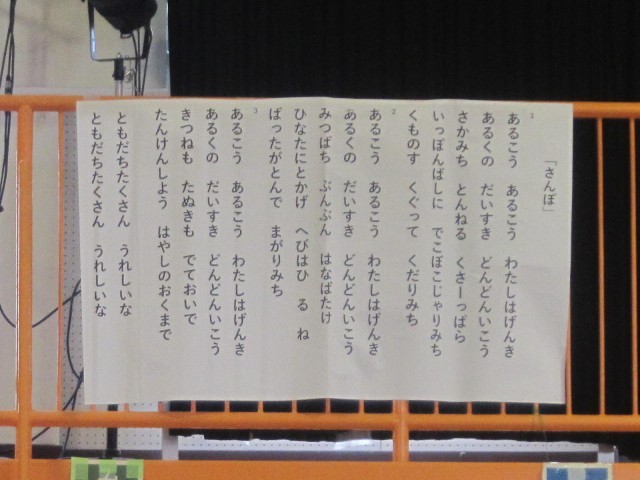 「さんぽ」
1
あるこう　あるこう　わたしはげんき
あるくの　だいすき　どんどんいこう
さかみち　とんねる　くさーっぱら
いっぽんばしに　でこぼこじゃりみち
くものす　くぐって　くだりみち
2
あるこう　あるこう　わたしはげんき
あるくの　だいすき　どんどんいこう
みつばち　ぶんぶん　はなばたけ
ひなたにとかげ　へびはひ　る　ね
ばったがとんで　まがりみち
3
あるこう　あるこう　わたしはげんき
あるくの　だいすき　どんどんいこう
きつねも　たぬきも　でておいで
たんけんしよう　はやしのおくまで
ともだちたくさん　うれしいな
ともだちたくさん　うれしいな